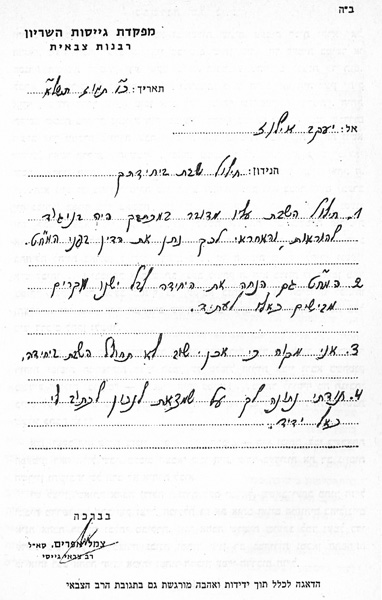 ב״ה
מפקדת גייסות השריון
רבנות צבאית
תאריך: כ״ו תמוז תשל״א
אל: יעקב
הנידון: חילול שבת ביחידתכם
1. חילול השבת עליו מדובר במכתבך היה בניגוד
להוראות, והאחראי לכך נתן את הדין בפני המח״ט.
2. המח״ט גם הנחה את היחידה לבל ישנו מקרים
מבישים כאלו לעתיד.
3. אני מקוה כי אכן שוב לא תחולל השבת ביחידה.
4. תודתי נתונה לך על שמצאת לנכון לכתוב לי
כאל ידיד.
בברכה
צמל אפרים, סא״ל
רב צבאי גייסי
הדאגה לכלל תוך ידידות ואהבה מורגשת גם בתגובת הרב הצבאי